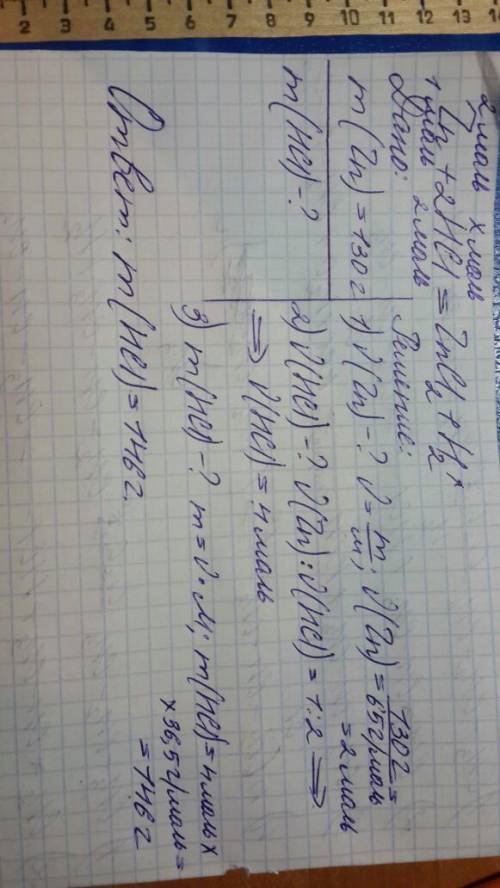 2 3 4 5 6 7 8 9 10 11 12 13
2 моль x моль
Zn + 2HCl = ZnCl₂ + H₂↑
1 моль 2 моль
Дано:
m(Zn) = 130 г
m(HCl) - ?
Решение:
1) ν(Zn) - ? ν = m/M; ν(Zn) = 130 г / 65 г/моль =
= 2 моль
2) ν(HCl) - ? ν(Zn) : ν(HCl) = 1:2 ⟹
⟹ ν(HCl) = 4 моль
3) m(HCl) - ? m = ν · M; m(HCl) = 4 моль x
x 36,5 г/моль =
= 146 г
Ответ: m(HCl) = 146 г.